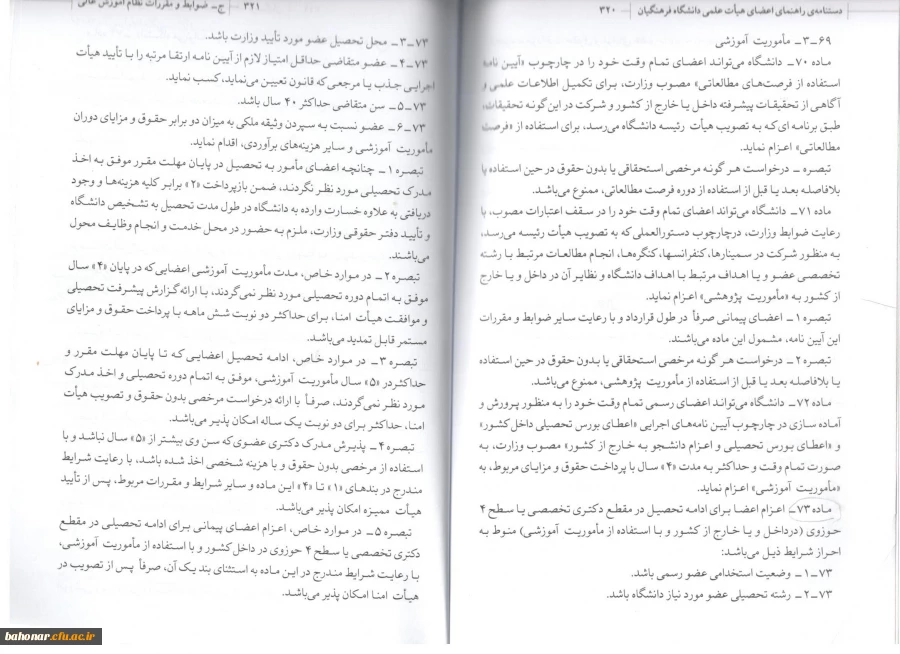 دستنامه‌ی راهنمای اعضای هیأت علمی دانشگاه فرهنگیان ـ ۳۲۰
۶۹ـ۳ـ مأموریت آموزشی
ماده ۷۰ـ دانشگاه می‌تواند اعضای تمام وقت خود را در چارچوب «آیین نامه
استفاده از فرصت‌های مطالعاتی» مصوب وزارت، برای تکمیل اطلاعات علمی و
آگاهی از تحقیقات پیشرفته داخل یا خارج از کشور و شرکت در این‌گونه تحقیقات،
طبق برنامه ای‌که به تصویب هیأت رئیسه دانشگاه می‌رسد، برای استفاده از «فرصت
مطالعاتی» اعزام نماید.
تبصره ـ درخواست هر گونه مرخصی استحقاقی یا بدون حقوق در حین استفاده یا
بلافاصله بعد یا قبل از استفاده از دوره فرصت مطالعاتی، ممنوع می‌باشد.
ماده ۷۱ـ دانشگاه می‌تواند اعضای تمام وقت خود را در سقف اعتبارات مصوب، با
رعایت ضوابط وزارت، درچارچوب دستورالعملی که به تصویب هیأت رئیسه می‌رسد،
به منظور شرکت در سمینارها، کنفرانسها، کنگره‌ها، انجام مطالعات مرتبط با رشته
تخصصی عضو و یا اهداف مرتبط با اهداف دانشگاه و نظایر آن در داخل و یا خارج
از کشور به «مأموریت پژوهشی» اعزام نماید.
تبصره ۱ـ اعضای پیمانی صرفاً در طول قرارداد و با رعایت سایر ضوابط و مقررات
این آیین نامه، مشمول این ماده می‌باشند.
تبصره ۲ـ درخواست هر گونه مرخصی استحقاقی یا بدون حقوق در حین استفاده
یا بلافاصله بعد یا قبل از استفاده از مأموریت پژوهشی، ممنوع می‌باشد.
ماده ۷۲ـ دانشگاه می‌تواند اعضای رسمی تمام وقت خود را به منظور پرورش و
آماده سازی در چارچوب آیین نامه‌های اجرایی «اعطای بورس تحصیلی داخل کشور»
و «اعطای بورس تحصیلی و اعزام دانشجو به خارج از کشور» مصوب وزارت، به
صورت تمام وقت و حداکثر به مدت «۴» سال با پرداخت حقوق و مزایای مربوط، به
«مأموریت آموزشی» اعزام نماید.
ماده ۷۳ـ اعزام اعضا برای ادامه تحصیل در مقطع دکتری تخصصی یا سطح ۴
حوزوی (درداخل و یا خارج از کشور و با استفاده از مأموریت آموزشی) منوط به
احراز شرایط ذیل می‌باشد:
۷۳ـ۱ـ وضعیت استخدامی عضو رسمی باشد.
۷۳ـ۲ـ رشته تحصیلی عضو مورد نیاز دانشگاه باشد.
ج‌ـ ضوابط و مقررات نظام آموزش عالی ـ ۳۲۱
۷۳ـ۳ـ محل تحصیل عضو مورد تأیید وزارت باشد.
۷۳ـ۴ـ عضو متقاضی حداقل امتیاز لازم از آیین نامه ارتقا مرتبه را با تأیید هیأت
اجرایی جذب یا مرجعی که قانون تعیین می‌نماید، کسب نماید.
۷۳ـ۵ـ سن متقاضی حداکثر ۴۰ سال باشد.
۷۳ـ۶ـ عضو نسبت به سپردن وثیقه ملکی به میزان دو برابر حقوق و مزایای دوران
مأموریت آموزشی و سایر هزینه‌های برآوردی، اقدام نماید.
تبصره ۱ـ چنانچه اعضای مأمور به تحصیل در پایان مهلت مقرر موفق به اخذ
مدرک تحصیلی مورد نظر نگردند، ضمن بازپرداخت «۲» برابر کلیه هزینه‌ها و وجوه
دریافتی به علاوه خسارت وارده به دانشگاه در طول مدت تحصیل به تشخیص دانشگاه
و تأیید دفتر حقوقی وزارت، ملزم به حضور در محل خدمت و انجام وظایف محول
می‌باشند.
تبصره ۲ـ در موارد خاص، مدت مأموریت آموزشی اعضایی‌که در پایان «۴» سال
موفق به اتمام دوره تحصیلی مورد نظر نمی‌گردند، با ارائه گزارش پیشرفت تحصیلی
و موافقت هیأت امنا، برای حداکثر دو نوبت شش ماهه با پرداخت حقوق و مزایای
مستمر قابل تمدید می‌باشد.
تبصره ۳ـ در موارد خاص، ادامه تحصیل اعضایی که تا پایان مهلت مقرر و
حداکثردر «۵» سال مأموریت آموزشی، موفق به اتمام دوره تحصیلی و اخذ مدرک
مورد نظر نمی‌گردند، صرفاً با ارائه درخواست مرخصی بدون حقوق و تصویب هیأت
امنا، حداکثر برای دو نوبت یک ساله امکان پذیر می‌باشد.
تبصره ۴ـ پذیرش مدرک دکتری عضوی‌که سن وی بیشتر از «۵» سال نباشد و با
استفاده از مرخصی بدون حقوق و با هزینه شخصی اخذ شده باشد، با رعایت شرایط
مندرج در بندهای «۱» تا «۴» این ماده و سایر شرایط و مقررات مربوط، پس از تأیید
هیأت ممیزه امکان پذیر می‌باشد.
تبصره ۵ـ در موارد خاص، اعزام اعضای پیمانی برای ادامه تحصیلی در مقطع
دکتری تخصصی یا سطح ۴ حوزوی در داخل کشور و با استفاده از مأموریت آموزشی،
با رعایت شرایط مندرج در این ماده به استثنای بند یک آن، صرفاً پس از تصویب در
هیأت امنا امکان پذیر می‌باشد.
bahonar.cfu.ac.ir